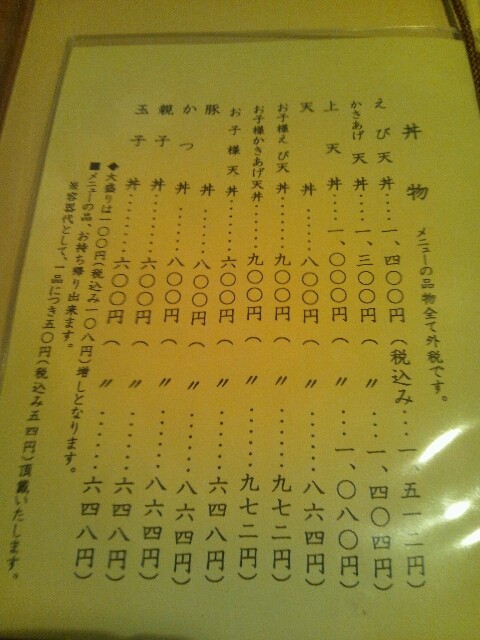 丼物 メニューの品物全て外税です。
えび天丼……一、四〇〇円(税込み…一、五一二円)
かきあげ天丼……一、三〇〇円(〃……一、四〇四円)
上天丼……一、〇〇〇円(〃……一、〇八〇円)
天丼……八〇〇円(〃……八六四円)
お子様えび天丼……九〇〇円(〃……九七二円)
お子様かきあげ天丼……九〇〇円(〃……九七二円)
お子様天丼……六〇〇円(〃……六四八円)
豚丼……八〇〇円(〃……八六四円)
かつ丼……八〇〇円(〃……八六四円)
親子丼……六〇〇円(〃……六四八円)
玉子丼……六〇〇円(〃……六四八円)
◆大盛りは一〇〇円(税込み一〇八円)増しとなります。
■メニューの品、お持ち帰り出来ます。
※容器代として、一品につき五〇円(税込み五四円)頂戴いたします。